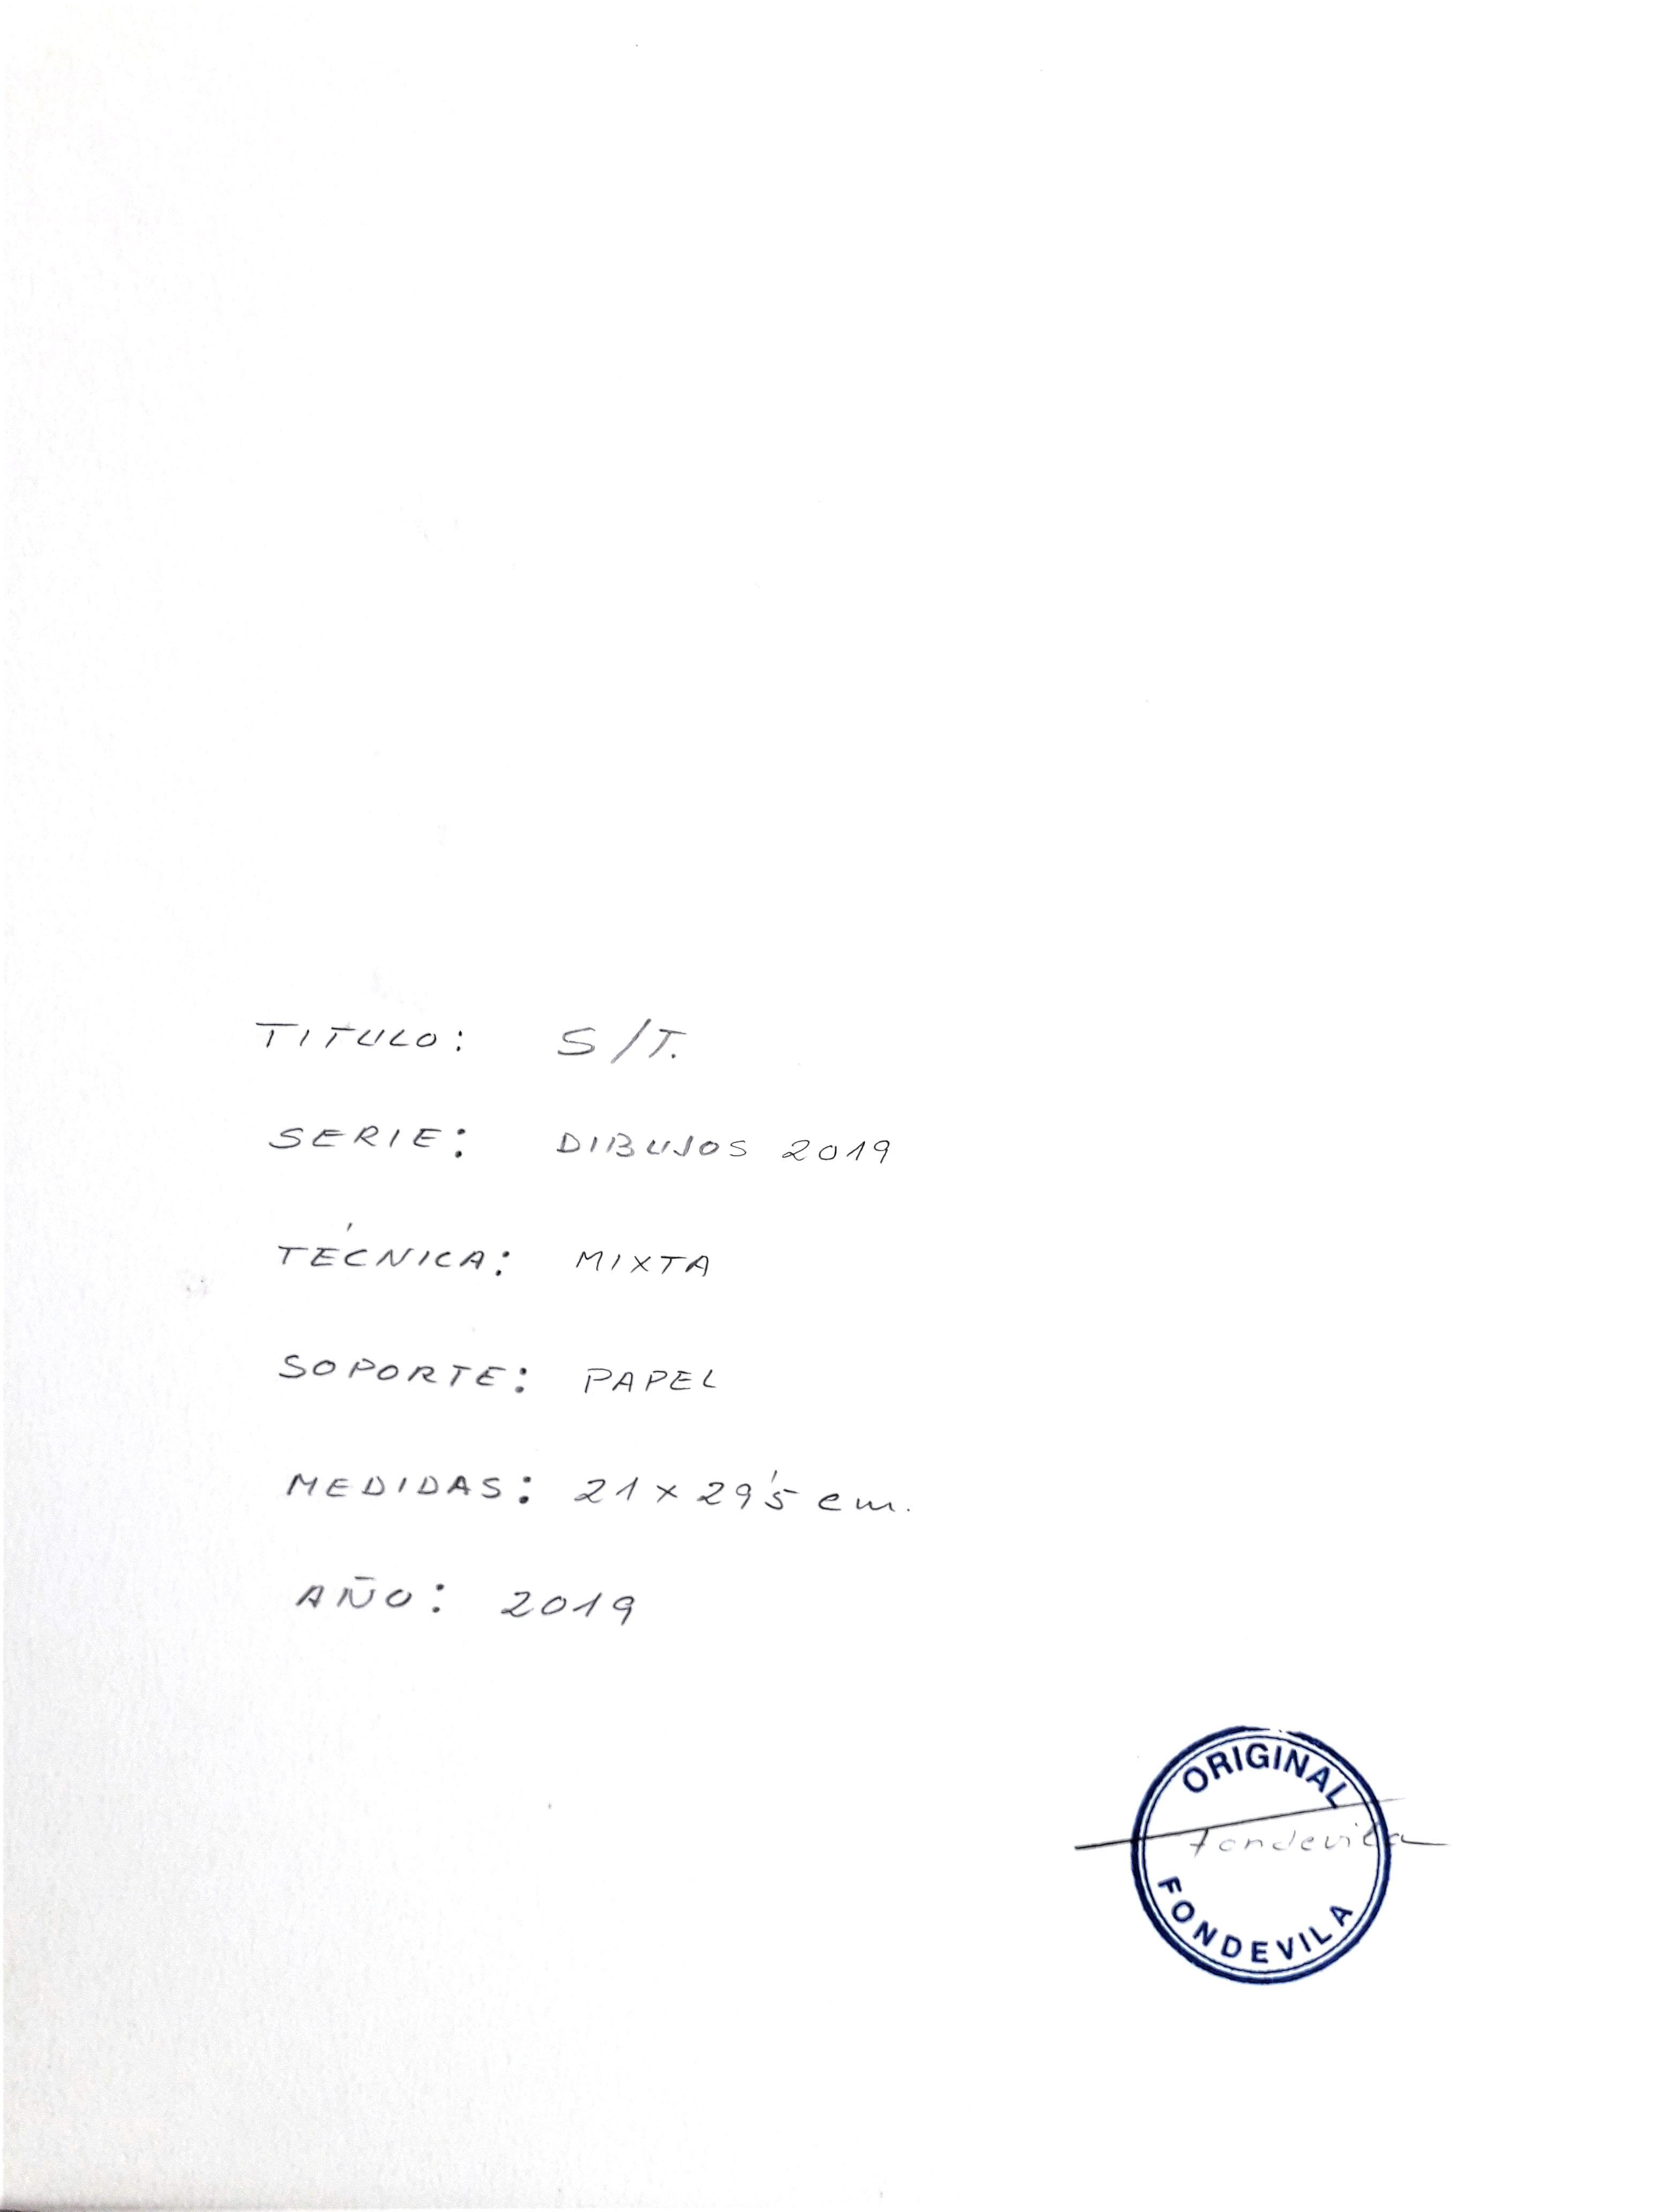 TITULO: S/T.
SERIE: DIBUJOS 2019
TÉCNICA: MIXTA
SOPORTE: PAPEL
MEDIDAS: 21 x 29'5 cm.
AÑO: 2019
ORIGINAL
Fondevila
FONDEVILA